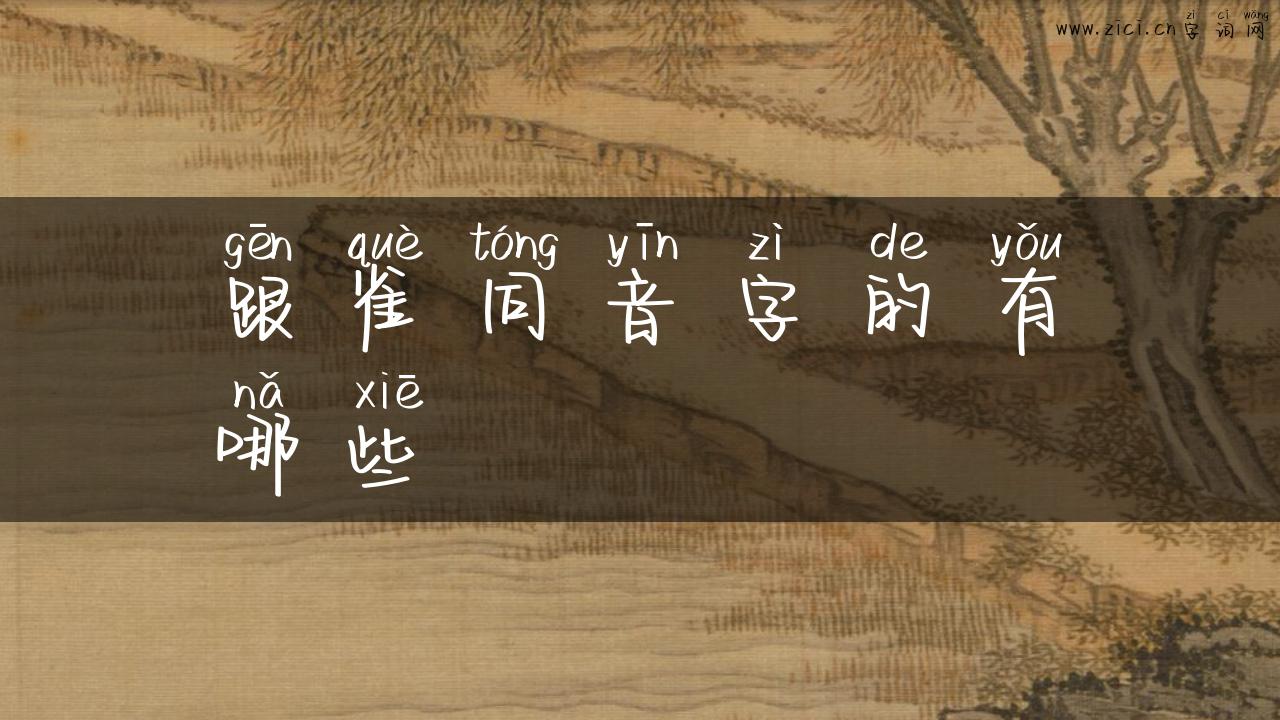 zì cí wǎng
www.zici.cn 字 词 网
gēn què tóng yīn zì de yǒu
跟 雀 同 音 字 的 有
nǎ xiē
哪 些